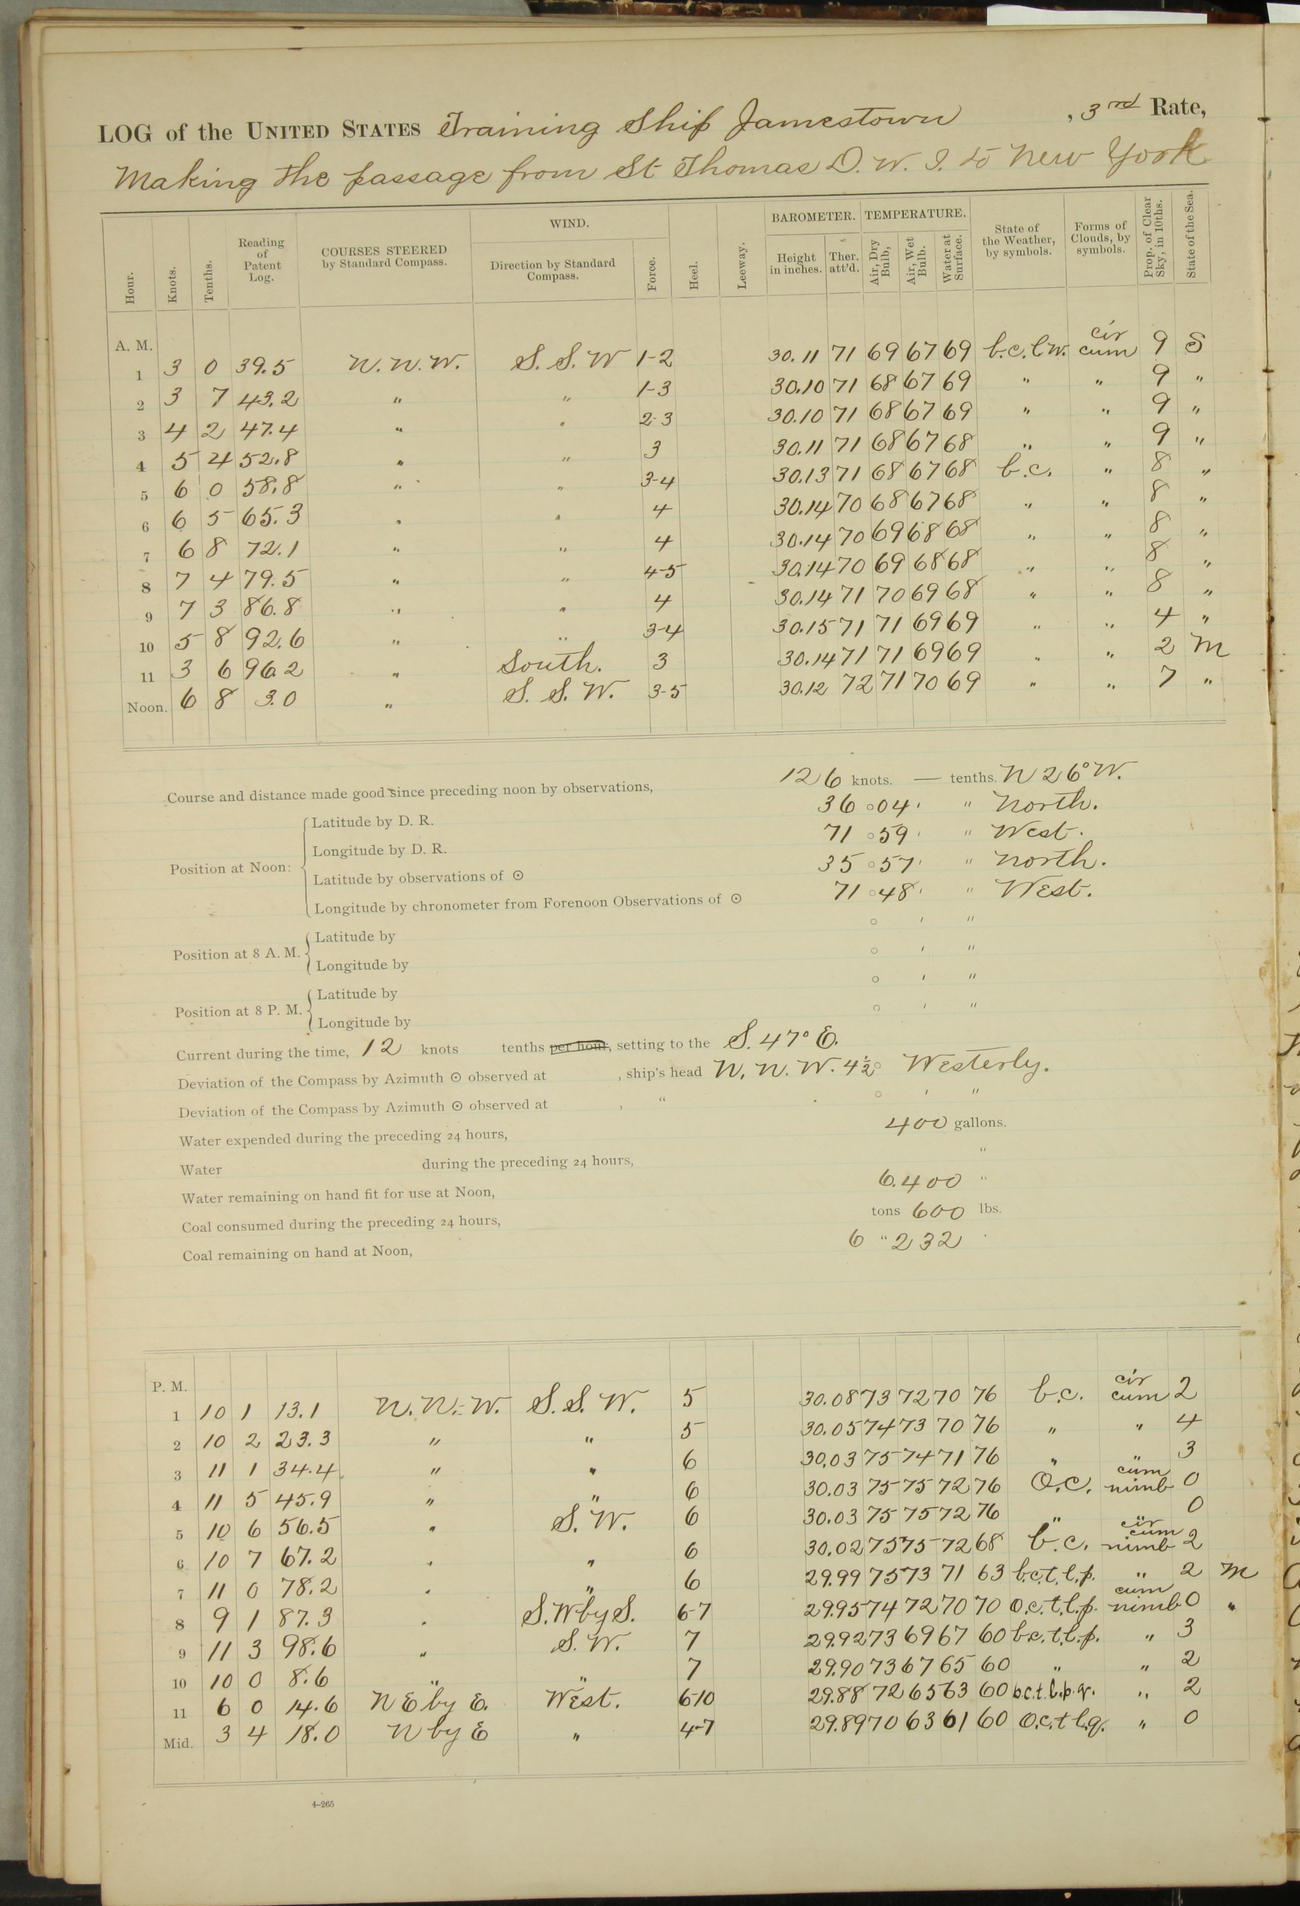 LOG of the UNITED STATES Training Ship Jamestown , 3rd Rate,
Making the passage from St Thomas D. W. I. to New York
Hour. Knots. Tenths. Reading of Patent Log. COURSES STEERED by Standard Compass. WIND. Direction by Standard Compass. Force. Heel. Leeway. BAROMETER. Height in inches. Ther. att'd. TEMPERATURE. Air, Dry Bulb, Air, Wet Bulb. Water at Surface. State of the Weather, by symbols. Forms of Clouds, by symbols. Prop. of Clear Sky, in 10ths. State of the Sea.
A. M.
1 3 0 39.5 N. N. W. S. S. W 1-2 30.11 71 69 67 69 b.c.l.w. cir cum 9 S
2 3 7 43.2 " " 1-3 30.10 71 68 67 69 " " 9 "
3 4 2 47.4 " " 2-3 30.10 71 68 67 69 " " 9 "
4 5 4 52.8 " " 3 30.11 71 68 67 68 " " 9 "
5 6 0 58.8 " " 3-4 30.13 71 68 67 68 b.c. " 8 "
6 6 5 65.3 " " 4 30.14 70 68 67 68 " " 8 "
7 6 8 72.1 " " 4 30.14 70 69 68 68 " " 8 "
8 7 4 79.5 " " 4-5 30.14 70 69 68 68 " " 8 "
9 7 3 86.8 " " 4 30.14 71 70 69 68 " " 8 "
10 5 8 92.6 " " 3-4 30.15 71 71 69 69 " " 4 "
11 3 6 96.2 " South. 3 30.14 71 71 69 69 " " 2 M
Noon. 6 8 3.0 " S. S. W. 3-5 30.12 72 71 70 69 " " 7 "
Course and distance made good since preceding noon by observations, 126 knots. — tenths. N 26° W.
Position at Noon: Latitude by D. R. 36 ° 04 ' " North.
Longitude by D. R. 71 ° 59 ' " West.
Latitude by observations of ☉ 35 ° 57 ' " North.
Longitude by chronometer from Forenoon Observations of ☉ 71 ° 48 ' " West.
Position at 8 A. M. Latitude by ° ' "
Longitude by ° ' "
Position at 8 P. M. Latitude by ° ' "
Longitude by ° ' "
Current during the time, 12 knots tenths per hour, setting to the S. 47° E.
Deviation of the Compass by Azimuth ☉ observed at , ship's head N. N. W. 4½° Westerly.
Deviation of the Compass by Azimuth ☉ observed at , " ° ' "
Water expended during the preceding 24 hours, 400 gallons.
Water during the preceding 24 hours, "
Water remaining on hand fit for use at Noon, 6.400 "
Coal consumed during the preceding 24 hours, tons 600 lbs.
Coal remaining on hand at Noon, 6 " 232 "
P. M.
1 10 1 13.1 N. N. W. S. S. W. 5 30.08 73 72 70 76 b.c. cir cum 2
2 10 2 23.3 " " 5 30.05 74 73 70 76 " " 4
3 11 1 34.4 " " 6 30.03 75 74 71 76 " " 3
4 11 5 45.9 " " 6 30.03 75 75 72 76 O.C. cum nimb 0
5 10 6 56.5 " S. W. 6 30.03 75 75 72 76 " " 0
6 10 7 67.2 " " 6 30.02 75 75 72 68 b.c. cir cum nimb 2
7 11 0 78.2 " " 6 29.99 75 73 71 63 b.c.t.l.p. " 2 M
8 9 1 87.3 " S. W by S. 6-7 29.95 74 72 70 70 O.c.t.l.p. cum nimb 0 "
9 11 3 98.6 " S. W. 7 29.92 73 69 67 60 b.c.t.l.p. " 3
10 10 0 8.6 " " 7 29.90 73 67 65 60 " " 2
11 6 0 14.6 N E by E. West. 6-10 29.88 72 65 63 60 b.c.t.l.p.q. " 2
Mid. 3 4 18.0 N by E " 4-7 29.89 70 63 61 60 O.c.t.l.q. " 0
4–265